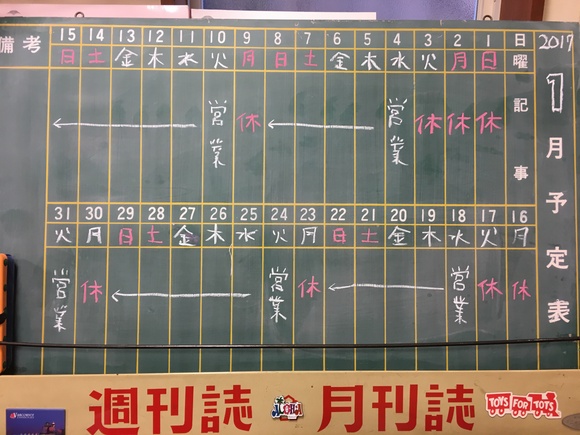 2017
1月予定表
備考 15 14 13 12 11 10 9 8 7 6 5 4 3 2 1 日
日 土 金 木 水 火 月 日 土 金 木 水 火 月 日 曜
営業 休 営業 休 休 休 記事
31 30 29 28 27 26 25 24 23 22 21 20 19 18 17 16
火 月 日 土 金 木 水 火 月 日 土 金 木 水 火 月
営業 休 営業 休 営業 休 休
週刊誌 月刊誌
TOYS FOR TOTS